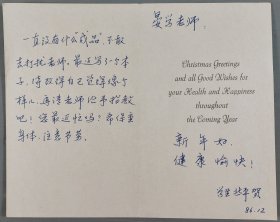 晏学老师：
一直没有什么"成品"不敢
去打扰老师。最近写了个本
子，待改得自己觉得像个
样儿，再请老师你予指教
吧！您最近忙吗？希保重
身体，注意节劳。
Christmas Greetings
and all Good Wishes for
your Health and Happiness
throughout
the Coming Year
新年好
健康愉快！
贺
86.12